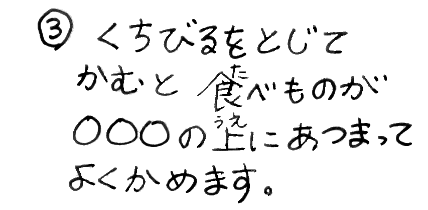 ③ くちびるをとじて
かむと 食べものが
○○○の上にあつまって
よくかめます。